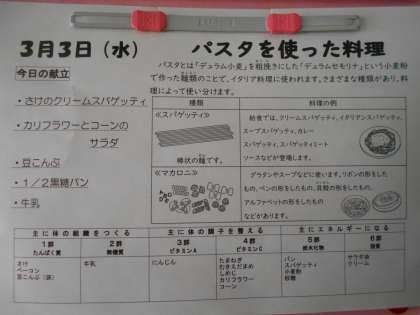 3月3日（水）　パスタを使った料理
今日の献立
・さけのクリームスパゲッティ
・カリフラワーとコーンの
サラダ
・豆こんぶ
・1／2黒糖パン
・牛乳
パスタとは「デュラム小麦」を粗挽きにした「デュラムセモリナ」という小麦粉
で作った麺類のことで、イタリア料理に使われます。さまざまな種類があり、料
理によって使い分けます。
種類　料理の例
≪スパゲッティ≫
棒状の麺です。
給食では、クリームスパゲッティ、イタリアンスパゲッティ、
スープスパゲッティ、カレー
スパゲッティ、スパゲッティミート
ソースなどが登場します。
≪マカロニ≫
グラタンやスープなどに使います。リボンの形をした
もの、ペンの形をしたもの、貝殻の形をしたもの、
アルファベットの形をしたもの
などがあります。
主に体の組織をつくる　主に体の調子を整える　主にエネルギーになる
1群　2群　3群　4群　5群　6群
たんぱく質　無機質　ビタミンA　ビタミンC　炭水化物　脂質
さけ
ベーコン
豆こんぶ（豆）
牛乳
にんじん
たまねぎ
むきえだまめ
しめじ
カリフラワー
コーン
パン
スパゲッティ
小麦粉
砂糖
サラダ油
クリーム